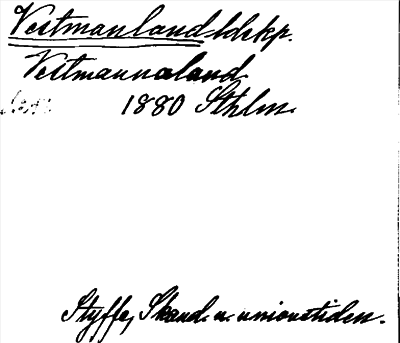 Vestmanland ldskp.
Vestmannaland.
1880 Sthlm.
Styffe, Skand. u. unionstiden.